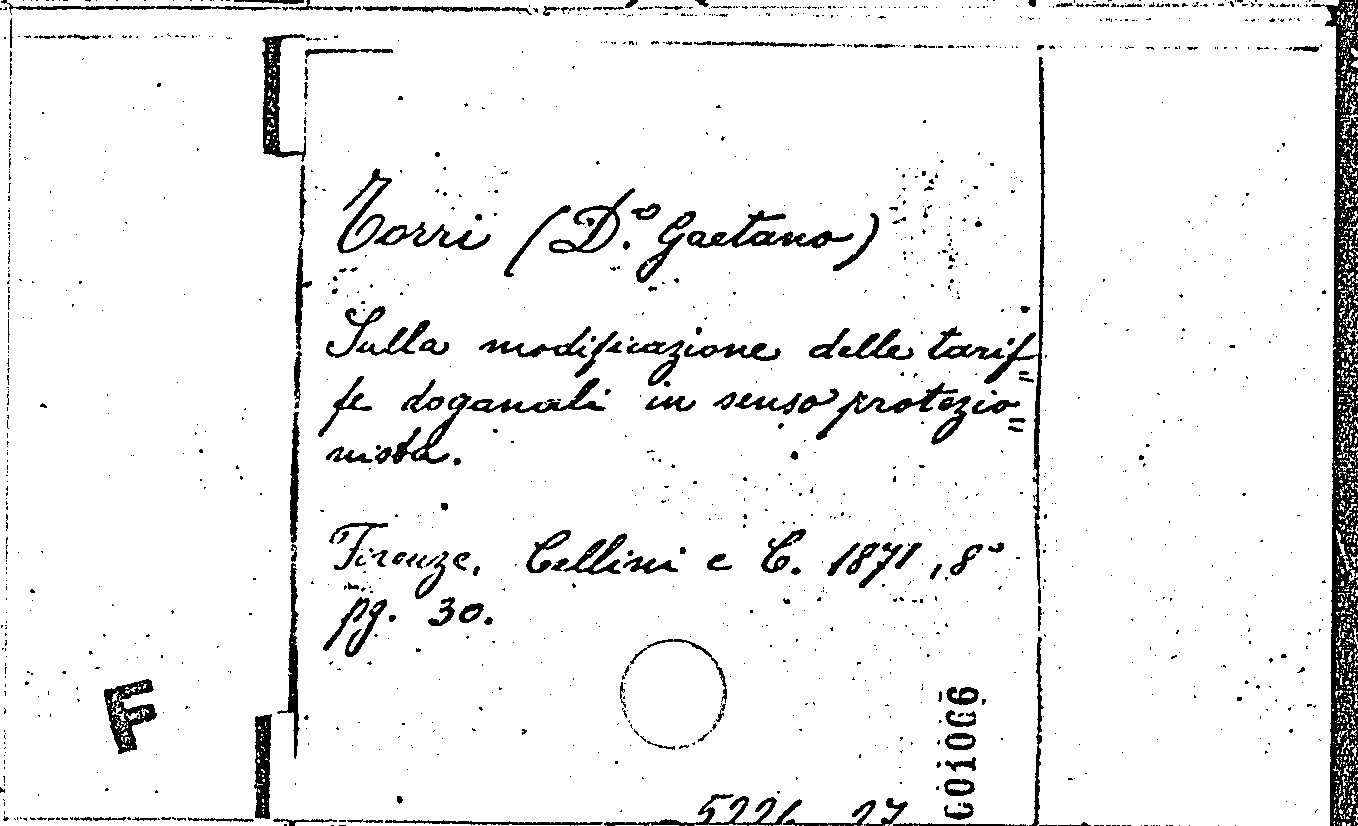 Torri (D.º Gaetano)
Sulla modificazione delle tarif=
fe doganali in senso protezio=
nista.
Firenze. Cellini e C. 1871, 8º
pg. 30.
F